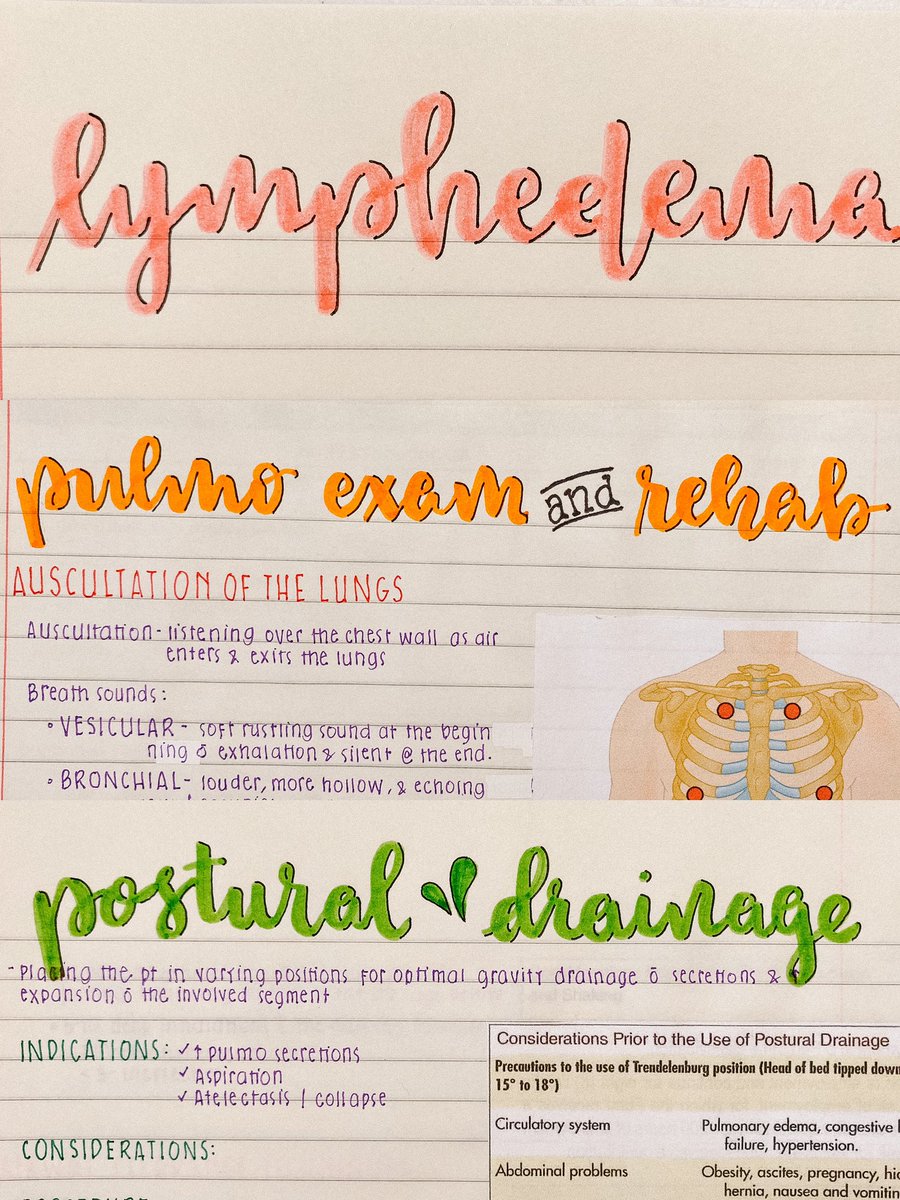 lymphedema
pulmo exam and rehab
AUSCULTATION OF THE LUNGS
Auscultation - listening over the chest wall as air
enters & exits the lungs
Breath sounds:
• VESICULAR - soft rustling sound at the begin
ning ō exhalation & silent @ the end.
• BRONCHIAL - louder, more hollow, & echoing
postural drainage
- Placing the pt in varying positions for optimal gravity drainage ō secretions & ↑
expansion ō the involved segment
INDICATIONS: ✓ ↑ pulmo secretions
✓ Aspiration
✓ Atelectasis / collapse
CONSIDERATIONS:
Considerations Prior to the Use of Postural Drainage
Precautions to the use of Trendelenburg position (Head of bed tipped down
15° to 18°)
Circulatory system Pulmonary edema, congestive
failure, hypertension.
Abdominal problems Obesity, ascites, pregnancy,
hernia, nausea and